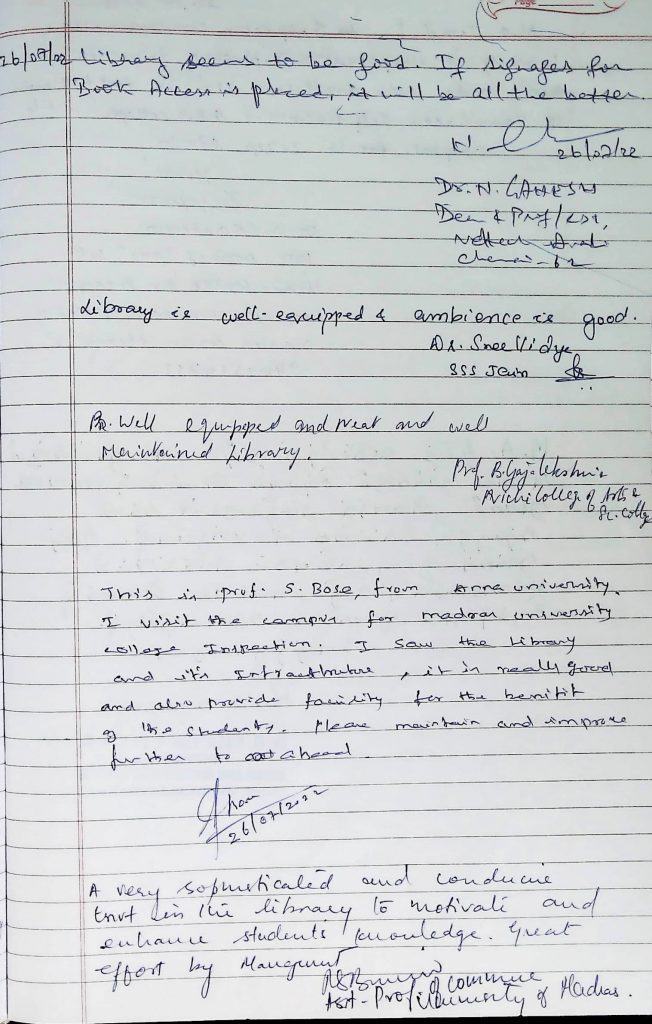 Page
26/07/22 Library seems to be good. If signages for
Book Access is placed, it will be all the better.
N.
26/07/22
Dr. N. GANESH
Dean & Prof/
Chennai-62
Library is well-equipped & ambience is good.
Dr. Sree Vidya
SSS Jain
Well equipped and Neat and well
Maintained Library.
Prof. B. Gajalakshmi
College of Arts &
Sc. College
This is prof. S. Bose, from Anna university.
I visit the campus for madras university
college Inspection. I saw the Library
and it's Infrastructure, it is really good
and also provide facility for the benifit
of the students. Please maintain and improve
further to ahead.
26/07/2022
A very sophisticated and conducive
in the library to motivate and
enhance students knowledge. Great
effort by Management
Asst-Prof of Commerce
University of Madras.